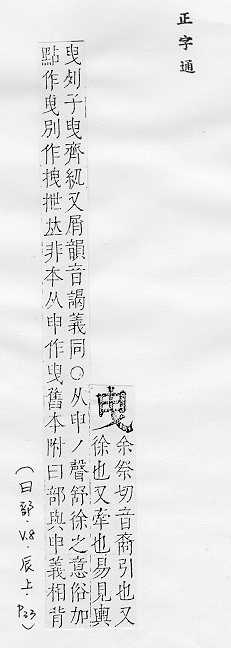 正字通
曳 余祭切音裔引也又
徐也又牽也易見輿
曳列子曳齊紈又屑韻音謁義同○从申丿聲舒徐之意俗加
點作曳別作拽抴𠀤非本从申作曳舊本附曰部與申義相背
（曰部·V.8·辰上·P.23）